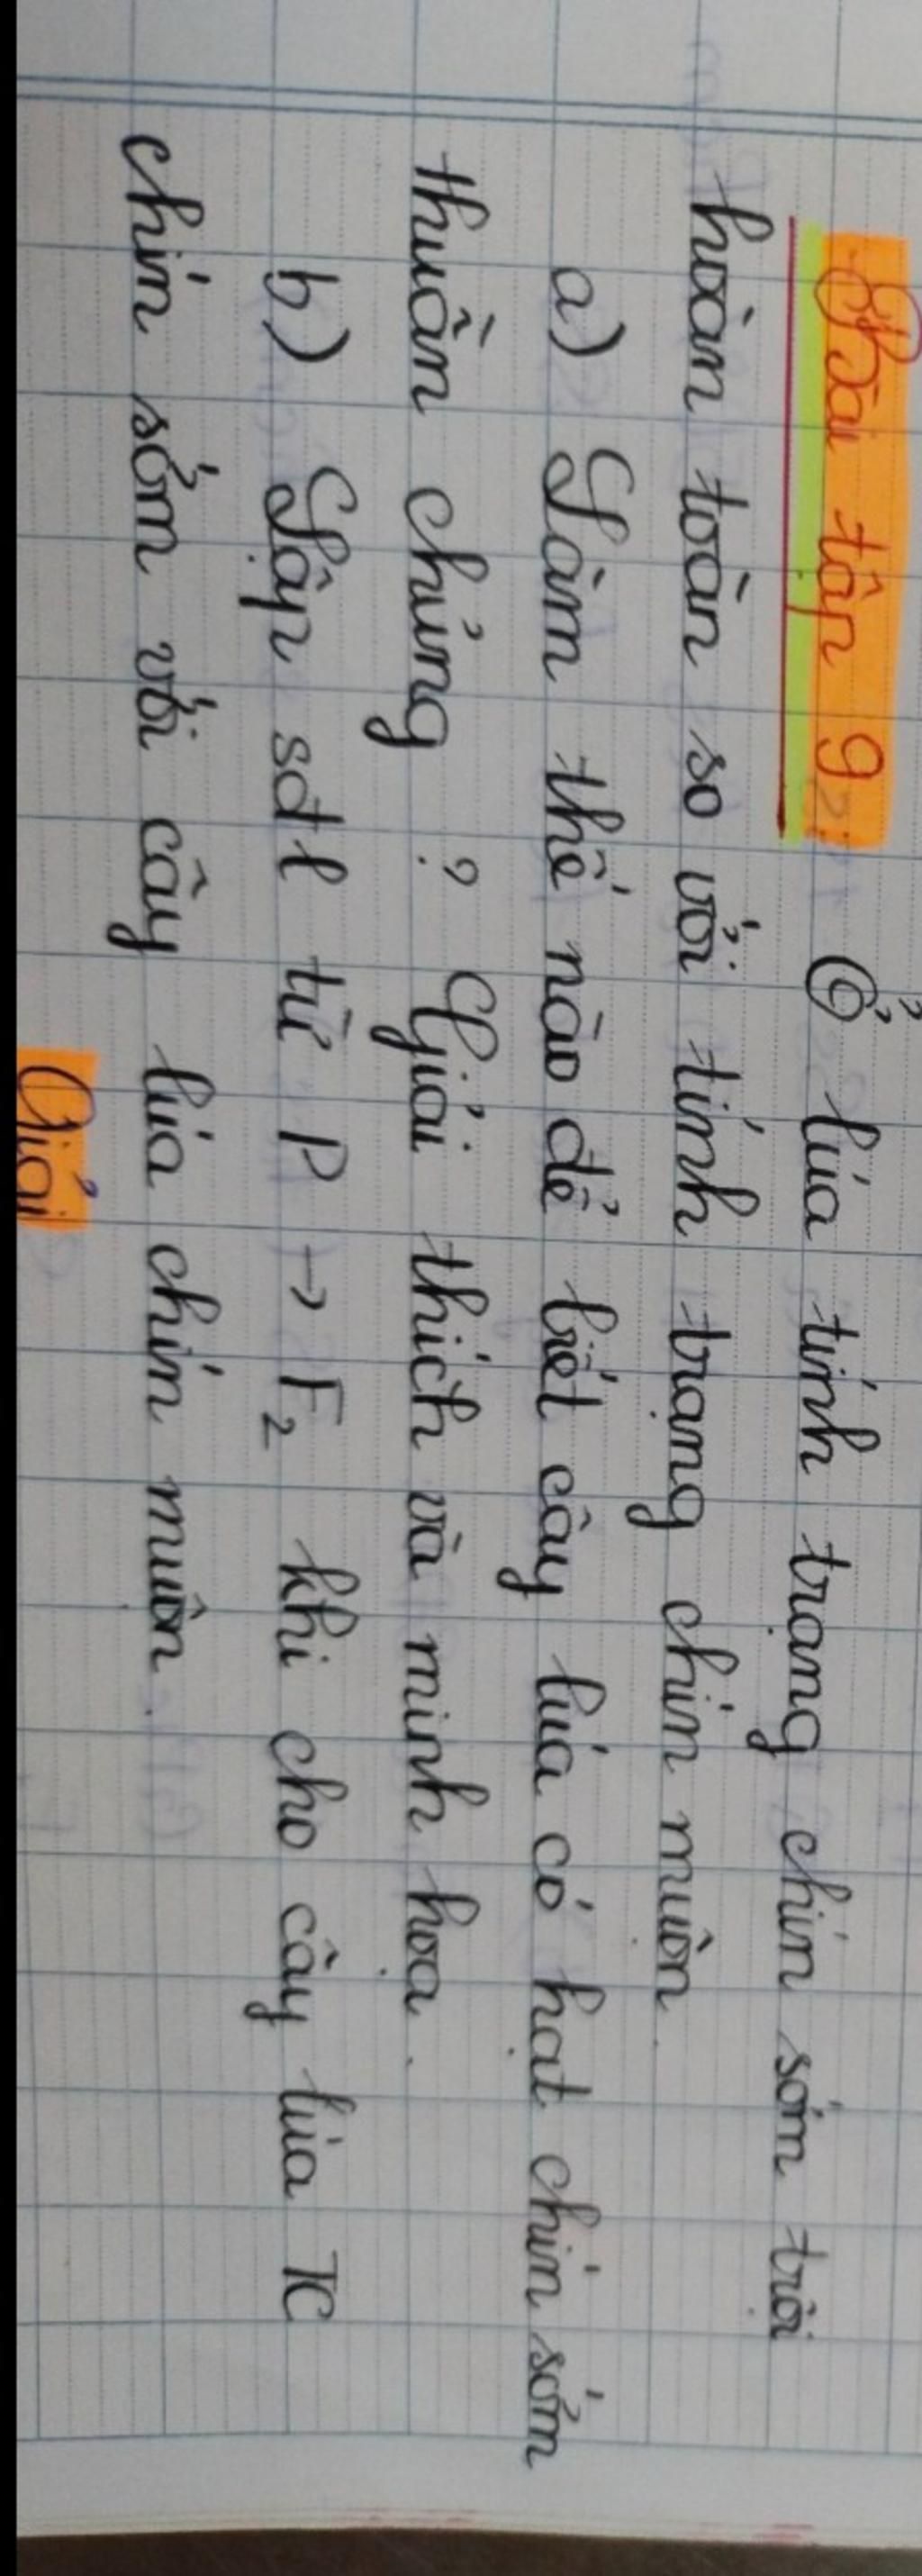 Bài tập 9: Ở lúa tính trạng chín sớm trội
hoàn toàn so với tính trạng chín muộn.
a) Làm thế nào để biết cây lúa có hạt chín sớm
thuần chủng? Giải thích và minh họa.
b) Lập sđl từ P → F₂ khi cho cây lúa TC
chín sớm với cây lúa chín muộn.
Giải